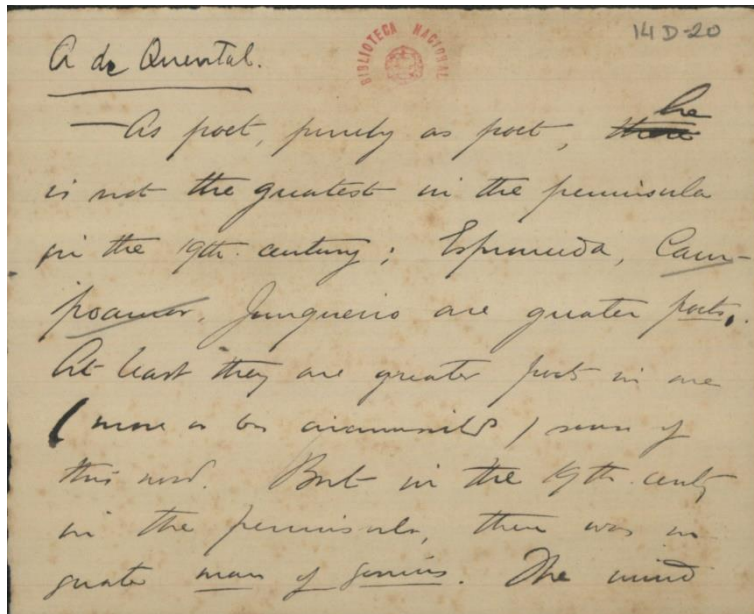 14 D-20
BIBLIOTECA NACIONAL
A de Quental.
— As poet, purely as poet, there he
is not the greatest in the peninsula
in the 19th. century; Espronceda, Cam-
poamor, Junqueiro are greater poets.
At least they are greater poets in one
(more or less circumscribed) sense of
this word. But in the 19th. centy
in the peninsula, there was no
greater man of genius. The mind